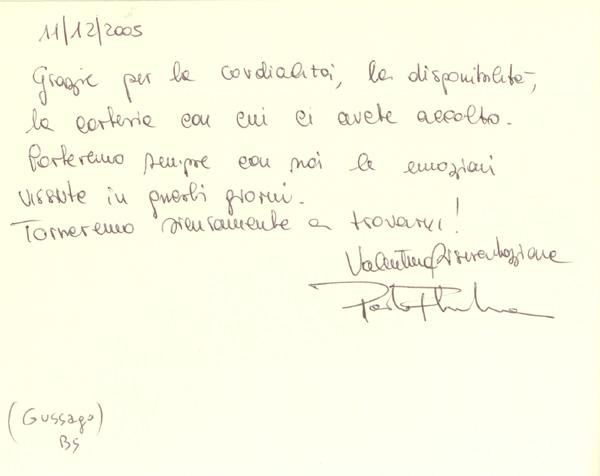 11/12/2005
Grazie per la cordialità, la disponibilità,
la cortesia con cui ci avete accolto.
Porteremo sempre con noi le emozioni
vissute in questi giorni.
Torneremo sicuramente a trovarvi!
Valentina
Paolo
(Gussago)
BS